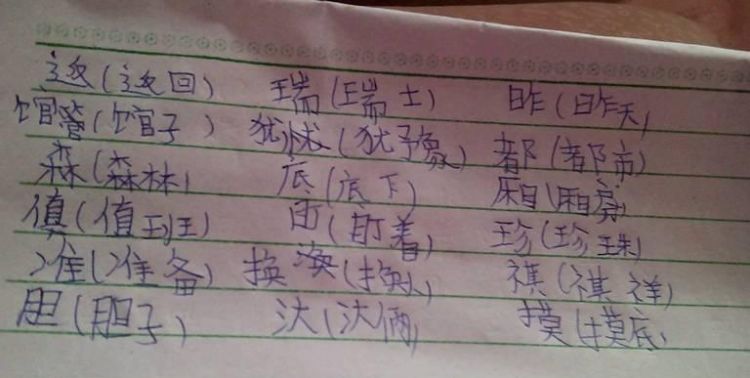 返(返回) 瑞(瑞士) 昨(昨天)
馆(馆子) 犹(犹豫) 都(都市)
森(森林) 底(底下) 厢(厢房)
值(值班) (盯着) 珍(珍珠)
准(准备) 换(换人) 祺(祺祥)
胆(胆子) 汰(汰俩) 摸(摸底)